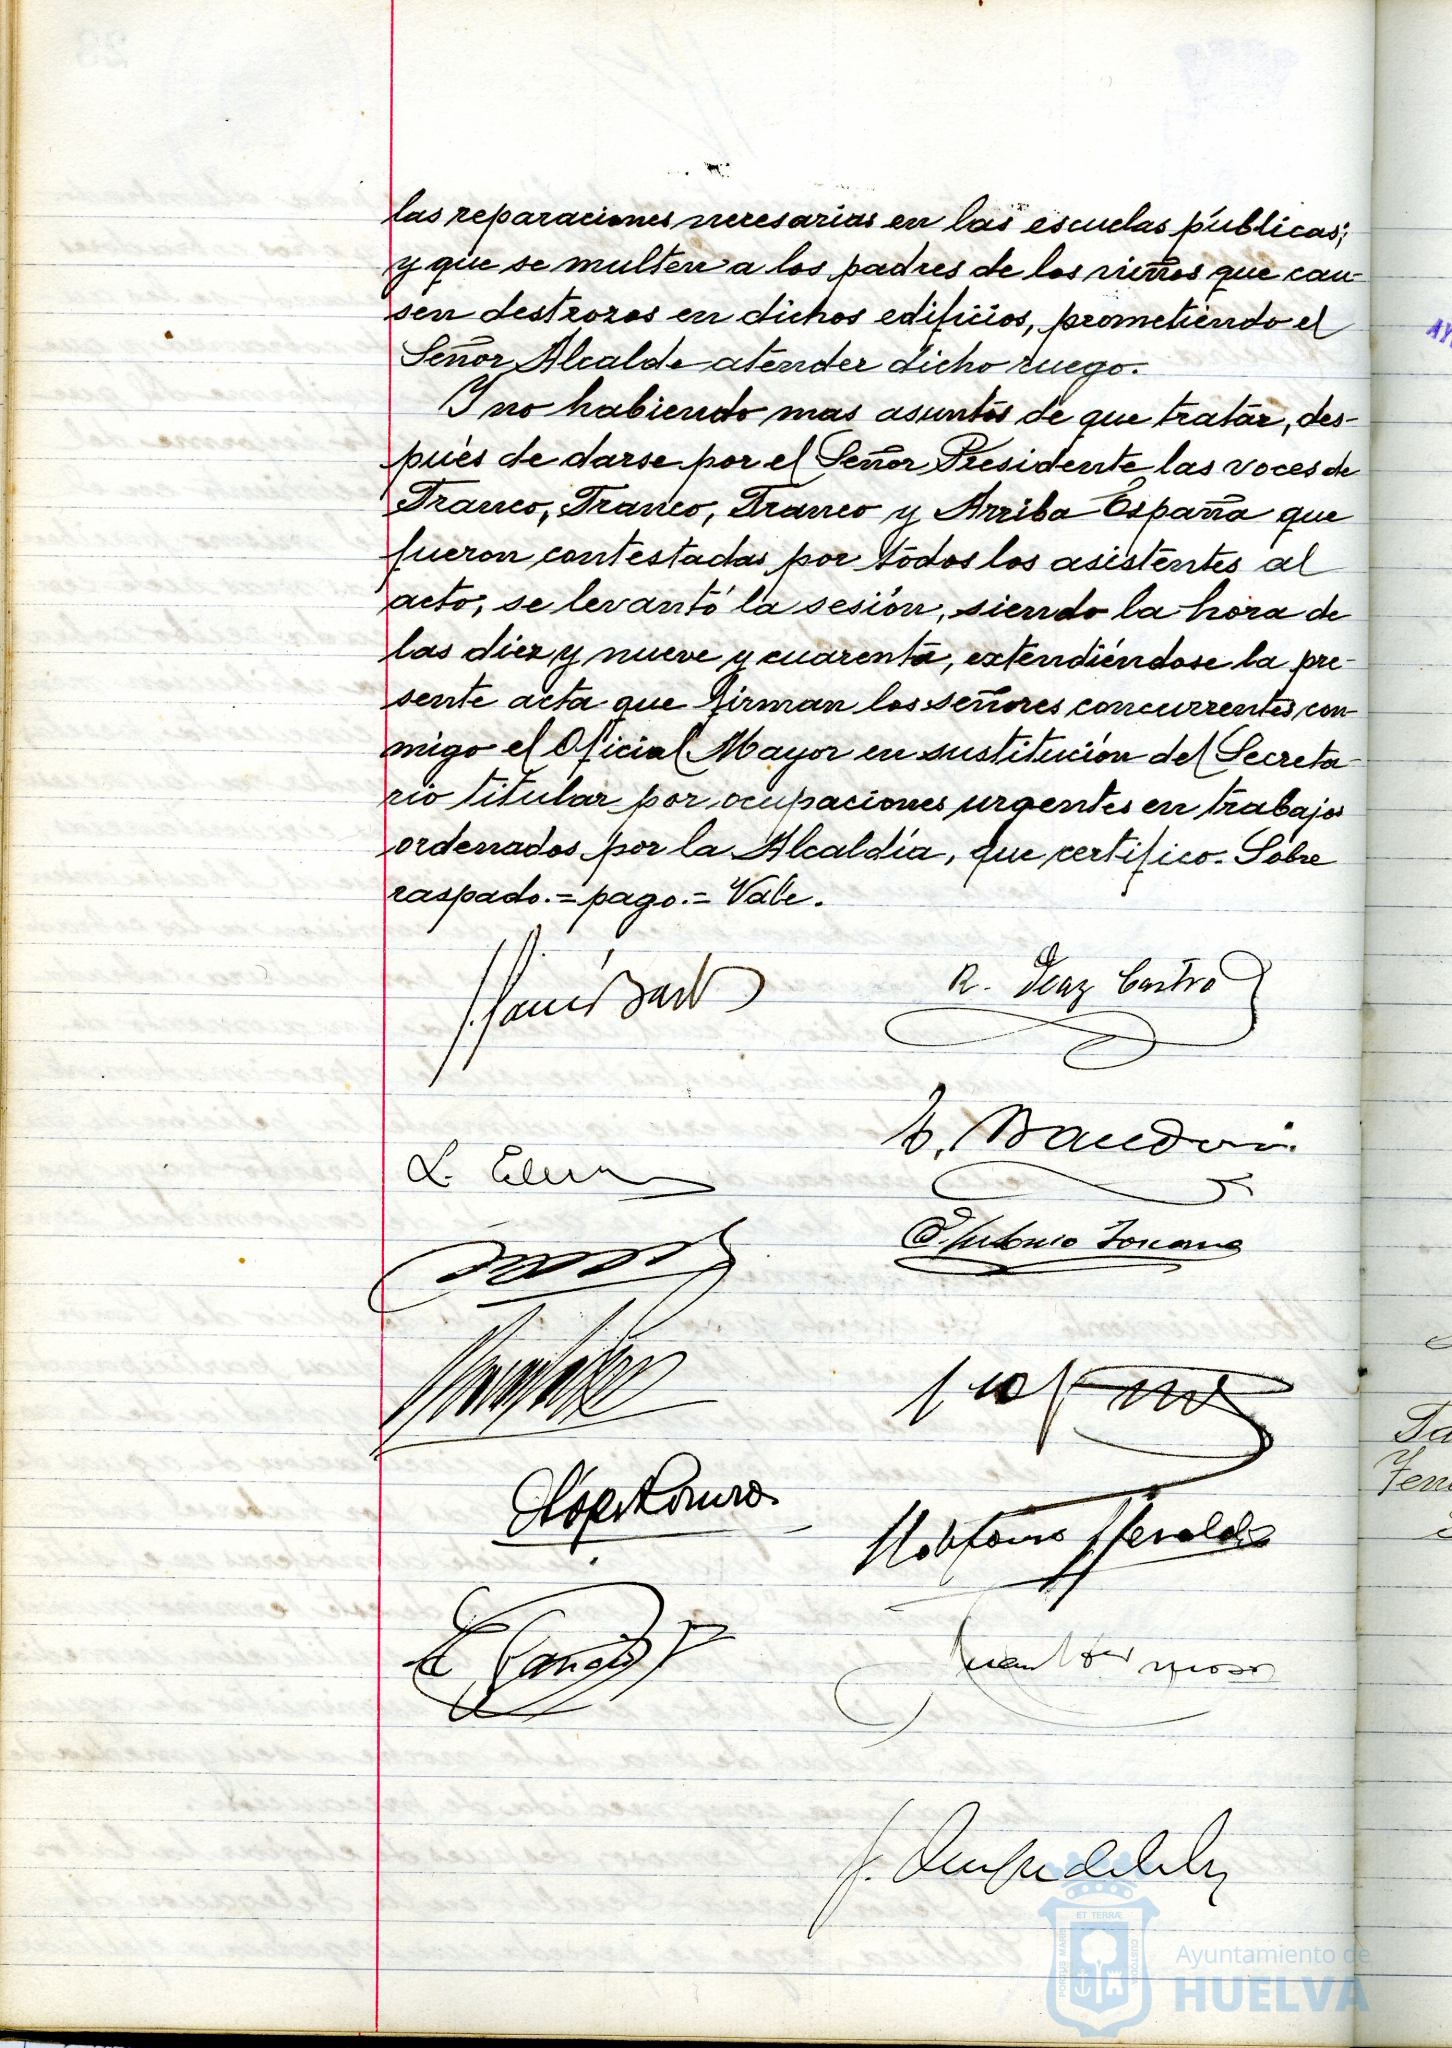 las reparaciones necesarias en las escuelas públicas;
y que se multen a los padres de los niños que cau-
sen destrozos en dichos edificios, prometiendo el
Señor Alcalde atender dicho ruego.
Y no habiendo mas asuntos de que tratar, des-
pués de darse por el Señor Presidente las voces de
Franco, Franco, Franco y Arriba España que
fueron contestadas por todos los asistentes al
acto, se levantó la sesión, siendo la hora de
las diez y nueve y cuarenta, extendiéndose la pre-
sente acta que firman los señores concurrentes con-
migo el Oficial Mayor en sustitución del Secreta-
rio titular por ocupaciones urgentes en trabajos
ordenados por la Alcaldía, que certifico. Sobre
raspado.= pago.= Vale.
R. Diaz Castro
ET TERRÆ
PORTUS MARIS
CUSTODIA
Ayuntamiento de
HUELVA